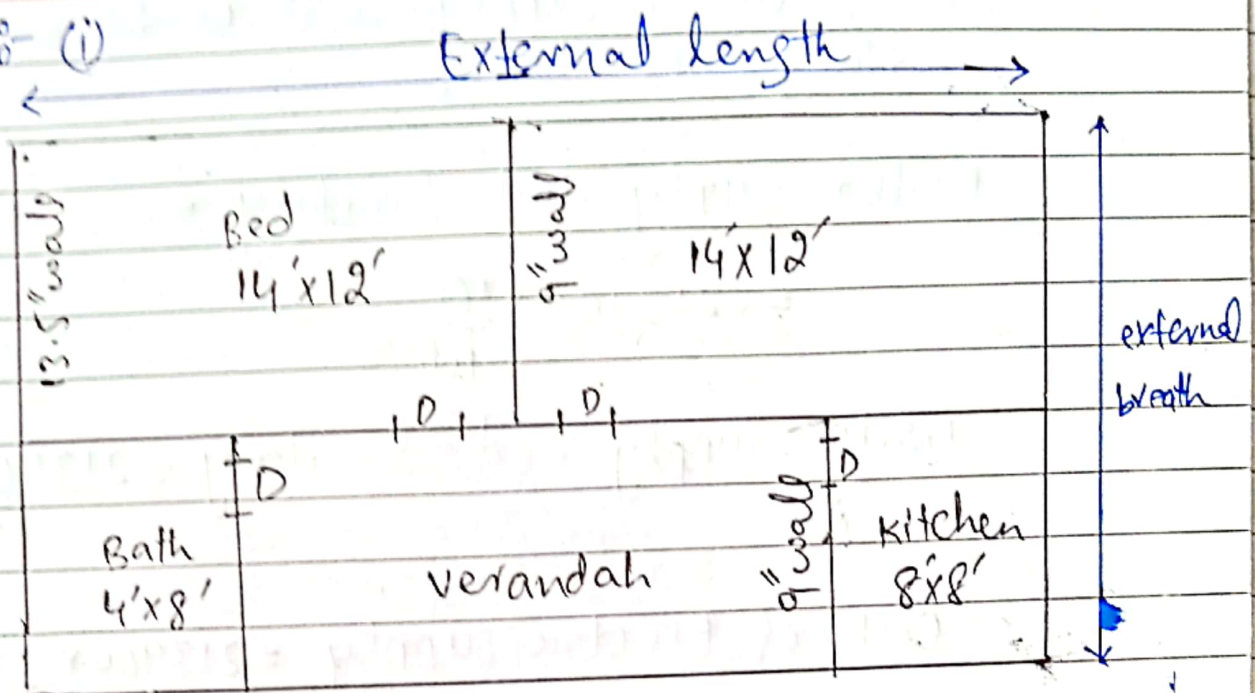 :- (i)
External length
13.5" wall
Bed
14'x12'
9" wall
14'x12'
external
breath
D
D
D
D
Bath
4'x8'
verandah
9" wall
Kitchen
8'x8'